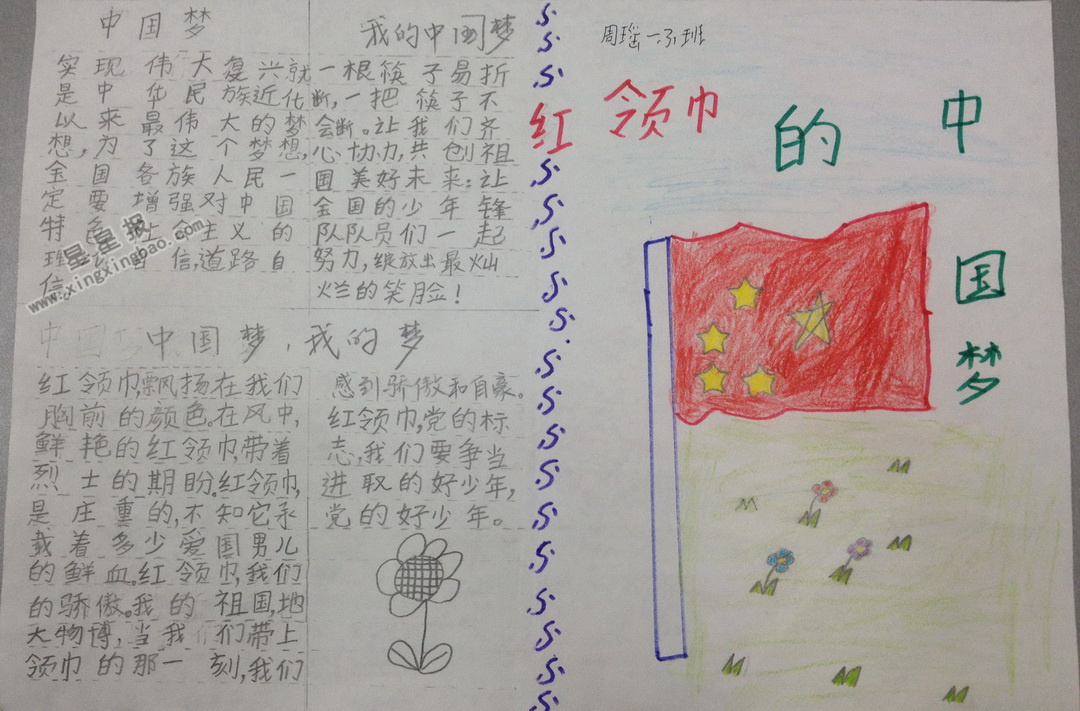 中国梦
实现伟大复兴就
是中华民族近代
以来最伟大的梦
想,为了这个梦想,
全国各族人民一
定要增强对中国
特色社会主义的
信,道路自
信
我的中国梦
一根筷子易折
断,一把筷子不
会断。让我们齐
心协力,共创祖
国美好未来:让
全国的少年锋
队队员们一起
努力,绽放出最灿
烂的笑脸!
星星报
www.xingxingbao.com
中国梦,我的梦
红领巾,飘扬在我们
胸前的颜色。在风中,
鲜艳的红领巾带着
烈士的期盼。红领巾,
是庄重的,不知它承
载着多少爱国男儿
的鲜血。红领巾,我们
的骄傲。我的祖国,地
大物博,当我们带上
领巾的那一刻,我们
感到骄傲和自豪。
红领巾,党的标
志,我们要争当
进取的好少年,
党的好少年。
周瑶
红领巾的中国梦